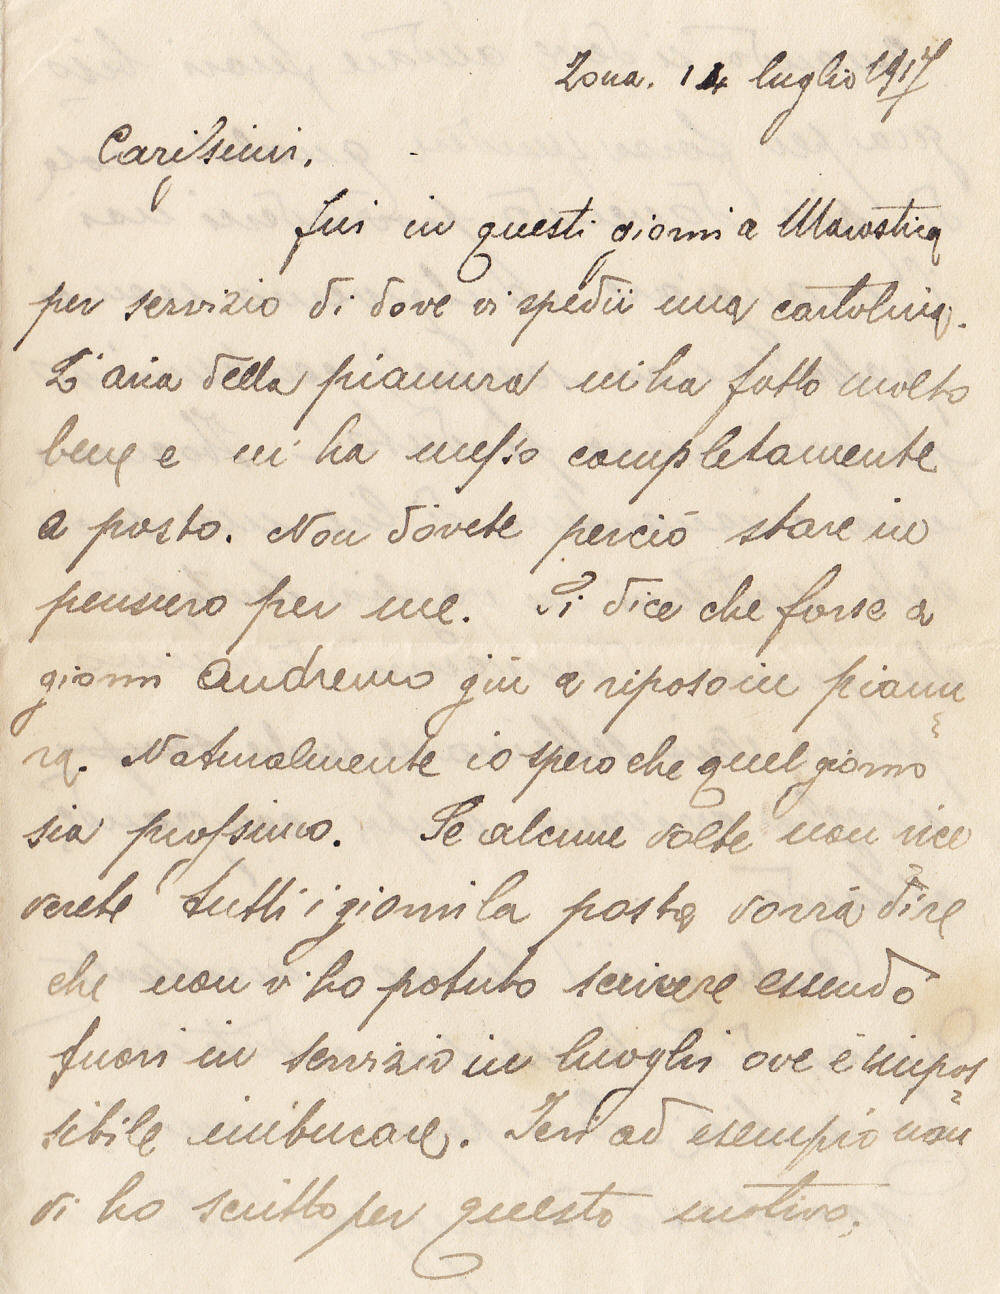 Zona. 14 luglio 1917
Carissimi.
fui in questi giorni a Marostica
per servizio di dove vi spedii una cartolina.
L'aria della pianura mi ha fatto molto
bene e mi ha messo completamente
a posto. Non dovete perciò stare in
pensiero per me. Si dice che forse a
giorni andremo giù a riposo in pianu=
ra. Naturalmente io spero che quel giorno
sia prossimo. Se alcune volte non rice
verete tutti i giorni la posta vorrà dire
che non vi ho potuto scrivere essendo
fuori in servizio in luoghi ove è impos=
sibile imbucare. Ieri ad esempio non
vi ho scritto per questo motivo.